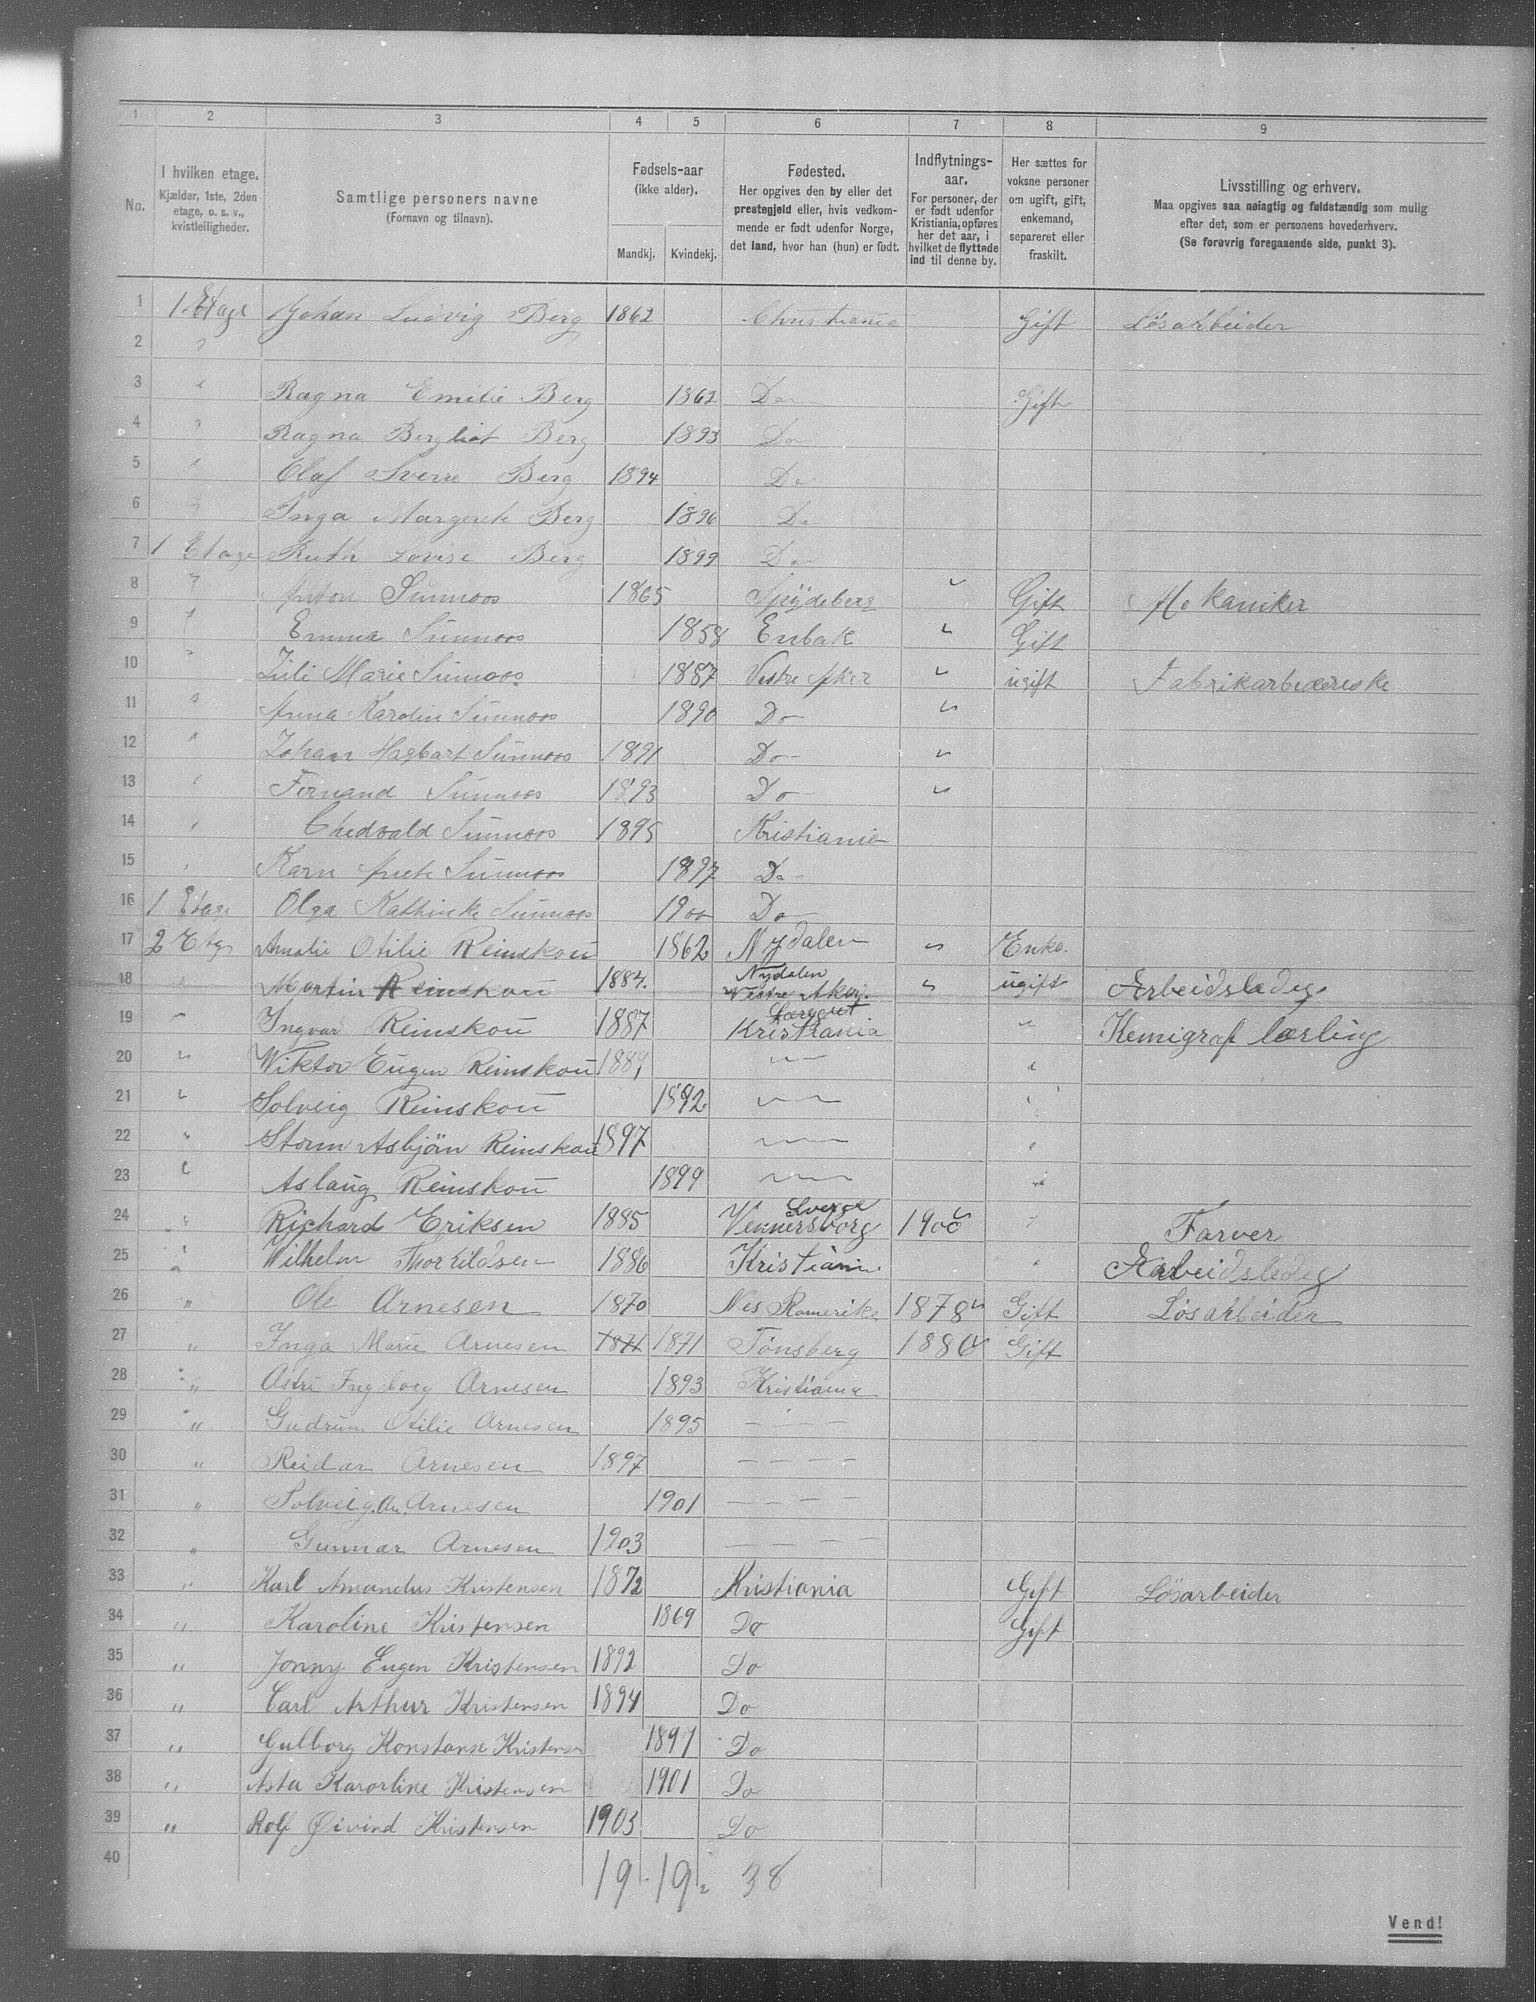 1 2 3 4 5 6 7 8 9
No.
I hvilken etage.
Kjælder, 1ste, 2den
etage, o. s. v.,
kvistleiligheder.
Samtlige personers navne
(Fornavn og tilnavn).
Fødsels-aar
(ikke alder).
Mandkj. Kvindekj.
Fødested.
Her opgives den by eller det
prestegjeld eller, hvis vedkom-
mende er født udenfor Norge,
det land, hvor han (hun) er født.
Indflytnings-
aar.
For personer, der
er født udenfor
Kristiania, opføres
her det aar, i
hvilket de flyttede
ind til denne by.
Her sættes for
voksne personer
om ugift, gift,
enkemand,
separeret eller
fraskilt.
Livsstilling og erhverv.
Maa opgives saa nøiagtig og fuldstændig som mulig
efter det, som er personens hovederhverv.
(Se forøvrig foregaaende side, punkt 3).
1 1 Etage Johan Ludvig Berg 1862 Christiania Gift Løsarbeider
2 "
3 " Ragna Emilie Berg 1862 Do Gift
4 " Ragna Bergliot Berg 1893 Do
5 " Olaf Sverre Berg 1894 Do
6 " Inga Margrete Berg 1896 Do
7 1 Etage Ruth Lovise Berg 1899 Do
8 " Anton Sunnoos 1865 Spydeberg " Gift Mekaniker
9 " Emma Sunnoos 1858 Enbak " Gift
10 " Juli Marie Sunnoos 1887 Vestre Aker " ugift Fabrikarbeiderske
11 " Anna Karolin Sunnoos 1890 Do "
12 " Johan Hagbart Sunnoos 1891 Do "
13 " Fernand Sunnoos 1893 Do "
14 " Thedvald Sunnoos 1895 Kristiania
15 " Karn Sunnoos 1897 Do
16 1 Etage Olga Kathinke Sunnoos 1900 Do
17 2 Etg Amalie Otilie Reinskou 1862 Nydalen " Enke.
18 " Martin Reinskou 1884. Nydalen Vestre Aker. " ugift Arbeidsledig
19 " Ingvar Reinskou 1887 Kristiania " Kemigraf lærling
20 " Wiktor Eugen Reinskou 1889 " "
21 " Solveig Reinskou 1892 " "
22 " Storm Asbjörn Reinskou 1897 " "
23 " Aslaug Reinskou 1899 " "
24 " Richard Eriksen 1885 Sverge Vennersborg 1900 " Farver
25 " Wilhelm Thorkildsen 1886 Kristiania " Arbeidsledig
26 " Ole Arnesen 1870 Nes Romerike 1878 Gift Løsarbeider
27 " Inga Marie Arnesen 1871 1871 Tönsberg 1880 Gift
28 " Astri Ingeborg Arnesen 1893 Kristiania
29 " Gudrun Otilie Arnesen 1895 — — —
30 " Reidar Arnesen 1897 — — — —
31 " Solveig An. Arnesen 1901 — — — —
32 " Gunnar Arnesen 1903 — — — —
33 " Karl Amandus Kristensen 1872 Kristiania Gift Løsarbeider
34 " Karoline Kristensen 1869 Do Gift
35 " Jonny Eugen Kristensen 1892 Do
36 " Carl Arthur Kristensen 1894 Do
37 " Gulborg Konstanse Kristensen 1897 Do
38 " Asta Karorline Kristensen 1901 Do
39 " Rolf Øivind Kristensen 1903 Do
40 19 . 19 = 38
Vend!